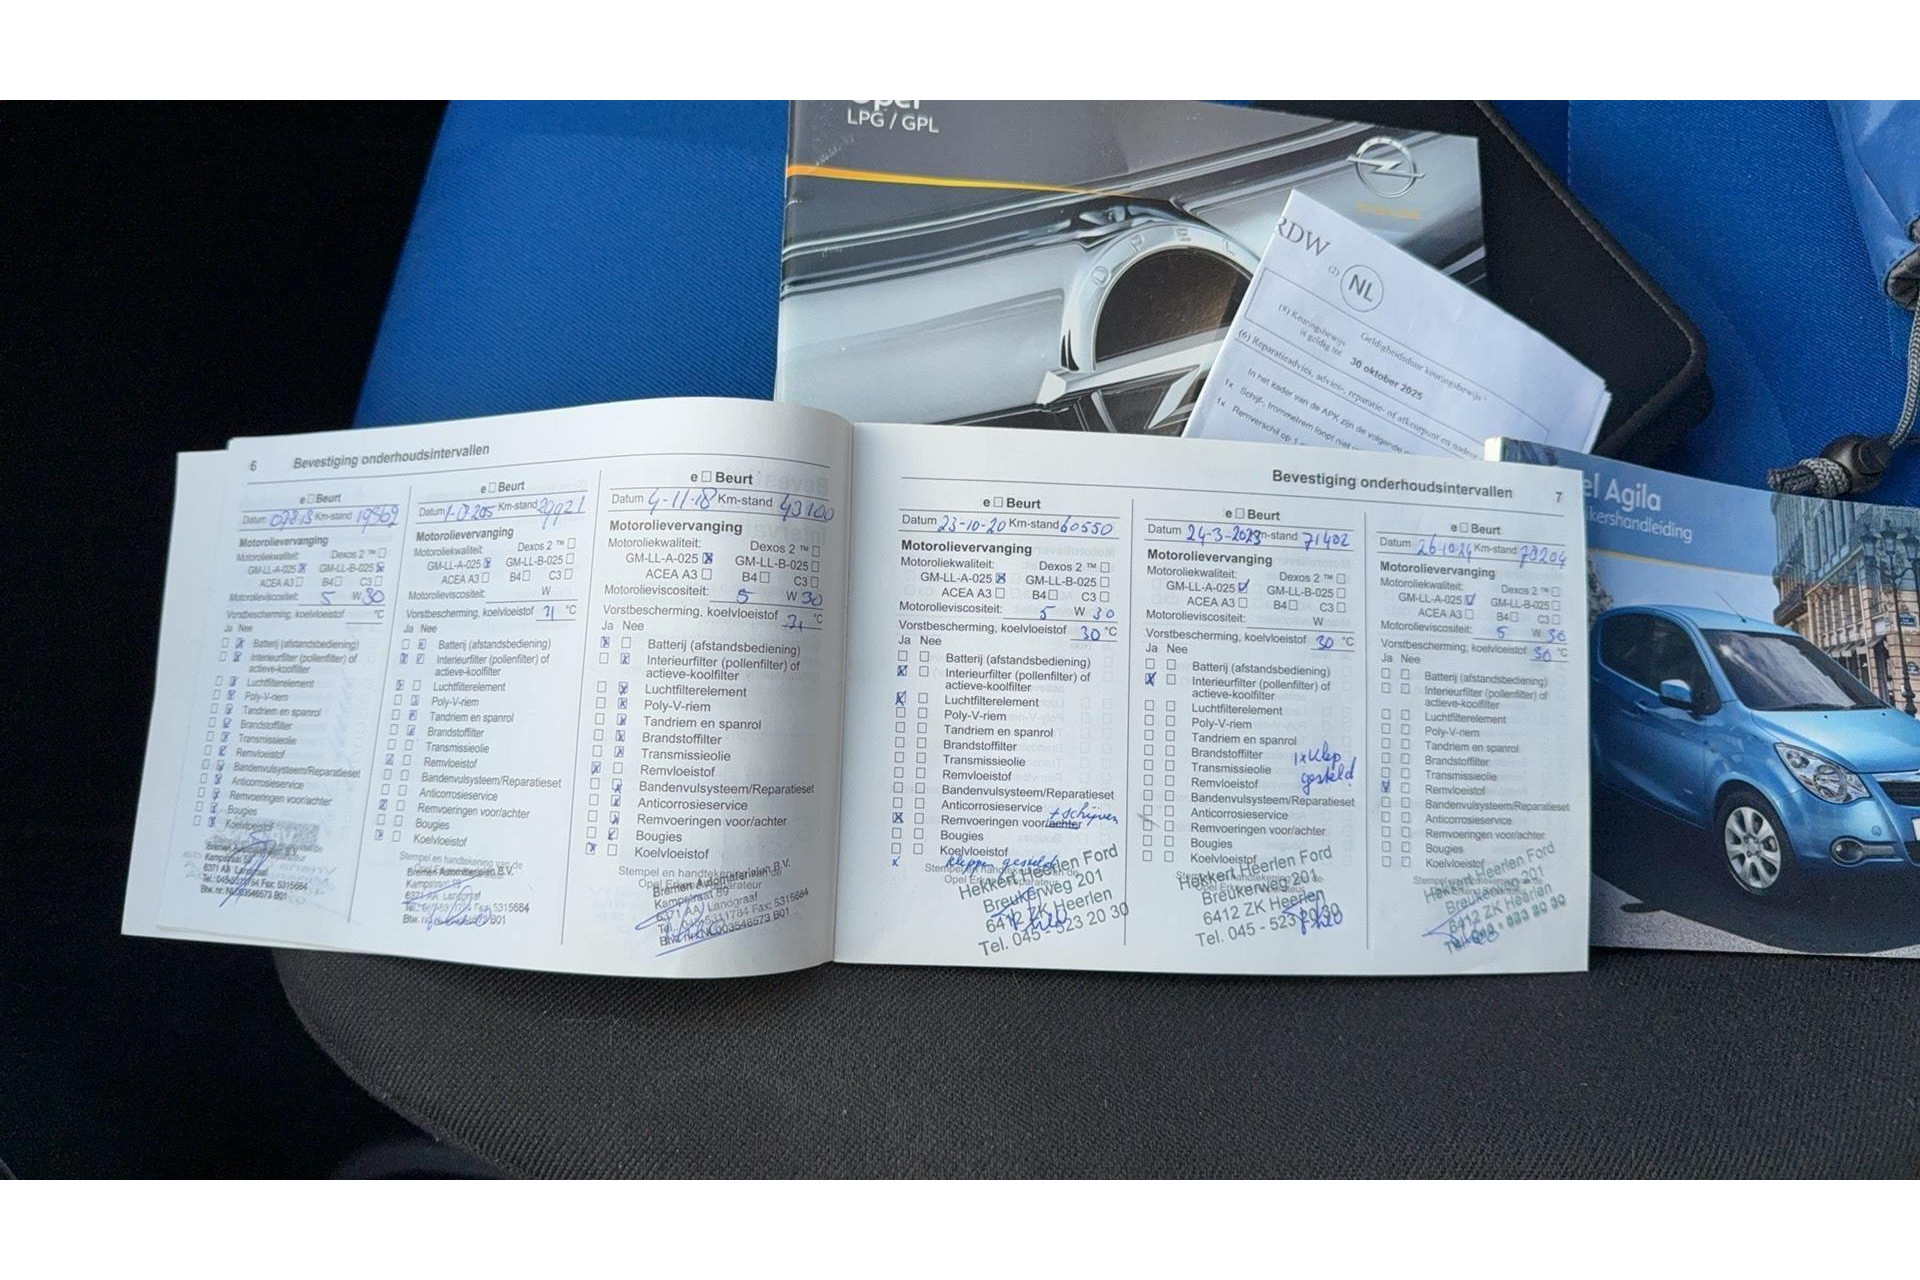 Opel
LPG / GPL
OPEL
RDW
(2) NL
Geldigheidsduur keuringsbewijs
(8) Keuringsbewijs
is geldig tot 30 oktober 2025
(6) Reparatieadvies, advies-, reparatie- of afkeurpunt en nadere
In het kader van de APK zijn de volgende
1x Schijf-, trommelrem loopt niet
1x Remverschil op
el Agila
ikershandleiding
6 Bevestiging onderhoudsintervallen
e Beurt
Datum Km-stand 19869
Motorolievervanging
Motoroliekwaliteit: Dexos 2 ™
GM-LL-A-025 GM-LL-B-025
ACEA A3 B4 C3
Motorolieviscositeit: 5 W 30
Vorstbescherming, koelvloeistof °C
Ja Nee
Batterij (afstandsbediening)
Interieurfilter (pollenfilter) of
actieve-koolfilter
Luchtfilterelement
Poly-V-riem
Tandriem en spanrol
Brandstoffilter
Transmissieolie
Remvloeistof
Bandenvulsysteem/Reparatieset
Anticorrosieservice
Remvoeringen voor/achter
Bougies
Koelvloeistof
Bremen Automaterialen B.V.
6371 AA Landgraaf
e Beurt
Datum Km-stand
Motorolievervanging
Motoroliekwaliteit: Dexos 2 ™
GM-LL-A-025 GM-LL-B-025
ACEA A3 B4 C3
Motorolieviscositeit: W
Vorstbescherming, koelvloeistof °C
Ja Nee
Batterij (afstandsbediening)
Interieurfilter (pollenfilter) of
actieve-koolfilter
Luchtfilterelement
Poly-V-riem
Tandriem en spanrol
Brandstoffilter
Transmissieolie
Remvloeistof
Bandenvulsysteem/Reparatieset
Anticorrosieservice
Remvoeringen voor/achter
Bougies
Koelvloeistof
Stempel en handtekening van de
Bremen Automaterialen B.V.
6371 AA Landgraaf
Fax: 5315684
e Beurt
Datum 4-11-18 Km-stand 43100
Motorolievervanging
Motoroliekwaliteit: Dexos 2 ™
GM-LL-A-025 GM-LL-B-025
ACEA A3 B4 C3
Motorolieviscositeit: 5 W 30
Vorstbescherming, koelvloeistof °C
Ja Nee
Batterij (afstandsbediening)
Interieurfilter (pollenfilter) of
actieve-koolfilter
Luchtfilterelement
Poly-V-riem
Tandriem en spanrol
Brandstoffilter
Transmissieolie
Remvloeistof
Bandenvulsysteem/Reparatieset
Anticorrosieservice
Remvoeringen voor/achter
Bougies
Koelvloeistof
Stempel en handtekening van de
Opel Erkend Reparateur
Bremen Automaterialen B.V.
Kampstraat 59
6371 AA Landgraaf
Fax: 5315684
Bevestiging onderhoudsintervallen 7
e Beurt
Datum 23-10-20 Km-stand 60550
Motorolievervanging
Motoroliekwaliteit: Dexos 2 ™
GM-LL-A-025 GM-LL-B-025
ACEA A3 B4 C3
Motorolieviscositeit: 5 W 30
Vorstbescherming, koelvloeistof 30 °C
Ja Nee
Batterij (afstandsbediening)
Interieurfilter (pollenfilter) of
actieve-koolfilter
Luchtfilterelement
Poly-V-riem
Tandriem en spanrol
Brandstoffilter
Transmissieolie
Remvloeistof
Bandenvulsysteem/Reparatieset
Anticorrosieservice
Remvoeringen voor/achter + schijven
Bougies
Koelvloeistof
x kleppen gesteld
Stempel en handtekening van de
Hekkert Heerlen Ford
Breukerweg 201
6412 ZK Heerlen
Tel. 045 - 523 20 30
e Beurt
Datum 24-3-2023 Km-stand 71402
Motorolievervanging
Motoroliekwaliteit: Dexos 2 ™
GM-LL-A-025 GM-LL-B-025
ACEA A3 B4 C3
Motorolieviscositeit: W
Vorstbescherming, koelvloeistof 30 °C
Ja Nee
Batterij (afstandsbediening)
Interieurfilter (pollenfilter) of
actieve-koolfilter
Luchtfilterelement
Poly-V-riem
Tandriem en spanrol
Brandstoffilter 1x klep
Transmissieolie gesteld
Remvloeistof
Bandenvulsysteem/Reparatieset
Anticorrosieservice
Remvoeringen voor/achter
Bougies
Koelvloeistof
Hekkert Heerlen Ford
Breukerweg 201
6412 ZK Heerlen
Tel. 045 - 523 20 30
e Beurt
Datum 26-10-24 Km-stand 78204
Motorolievervanging
Motoroliekwaliteit: Dexos 2 ™
GM-LL-A-025 GM-LL-B-025
ACEA A3 B4 C3
Motorolieviscositeit: 5 W 30
Vorstbescherming, koelvloeistof 30 °C
Ja Nee
Batterij (afstandsbediening)
Interieurfilter (pollenfilter) of
actieve-koolfilter
Luchtfilterelement
Poly-V-riem
Tandriem en spanrol
Brandstoffilter
Transmissieolie
Remvloeistof
Bandenvulsysteem/Reparatieset
Anticorrosieservice
Remvoeringen voor/achter
Bougies
Koelvloeistof
Hekkert Heerlen Ford
Breukerweg 201
6412 ZK Heerlen